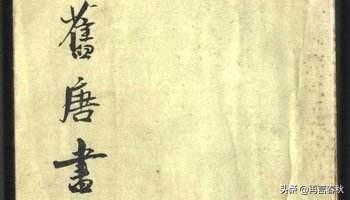 舊唐書
头条 @再言春秋